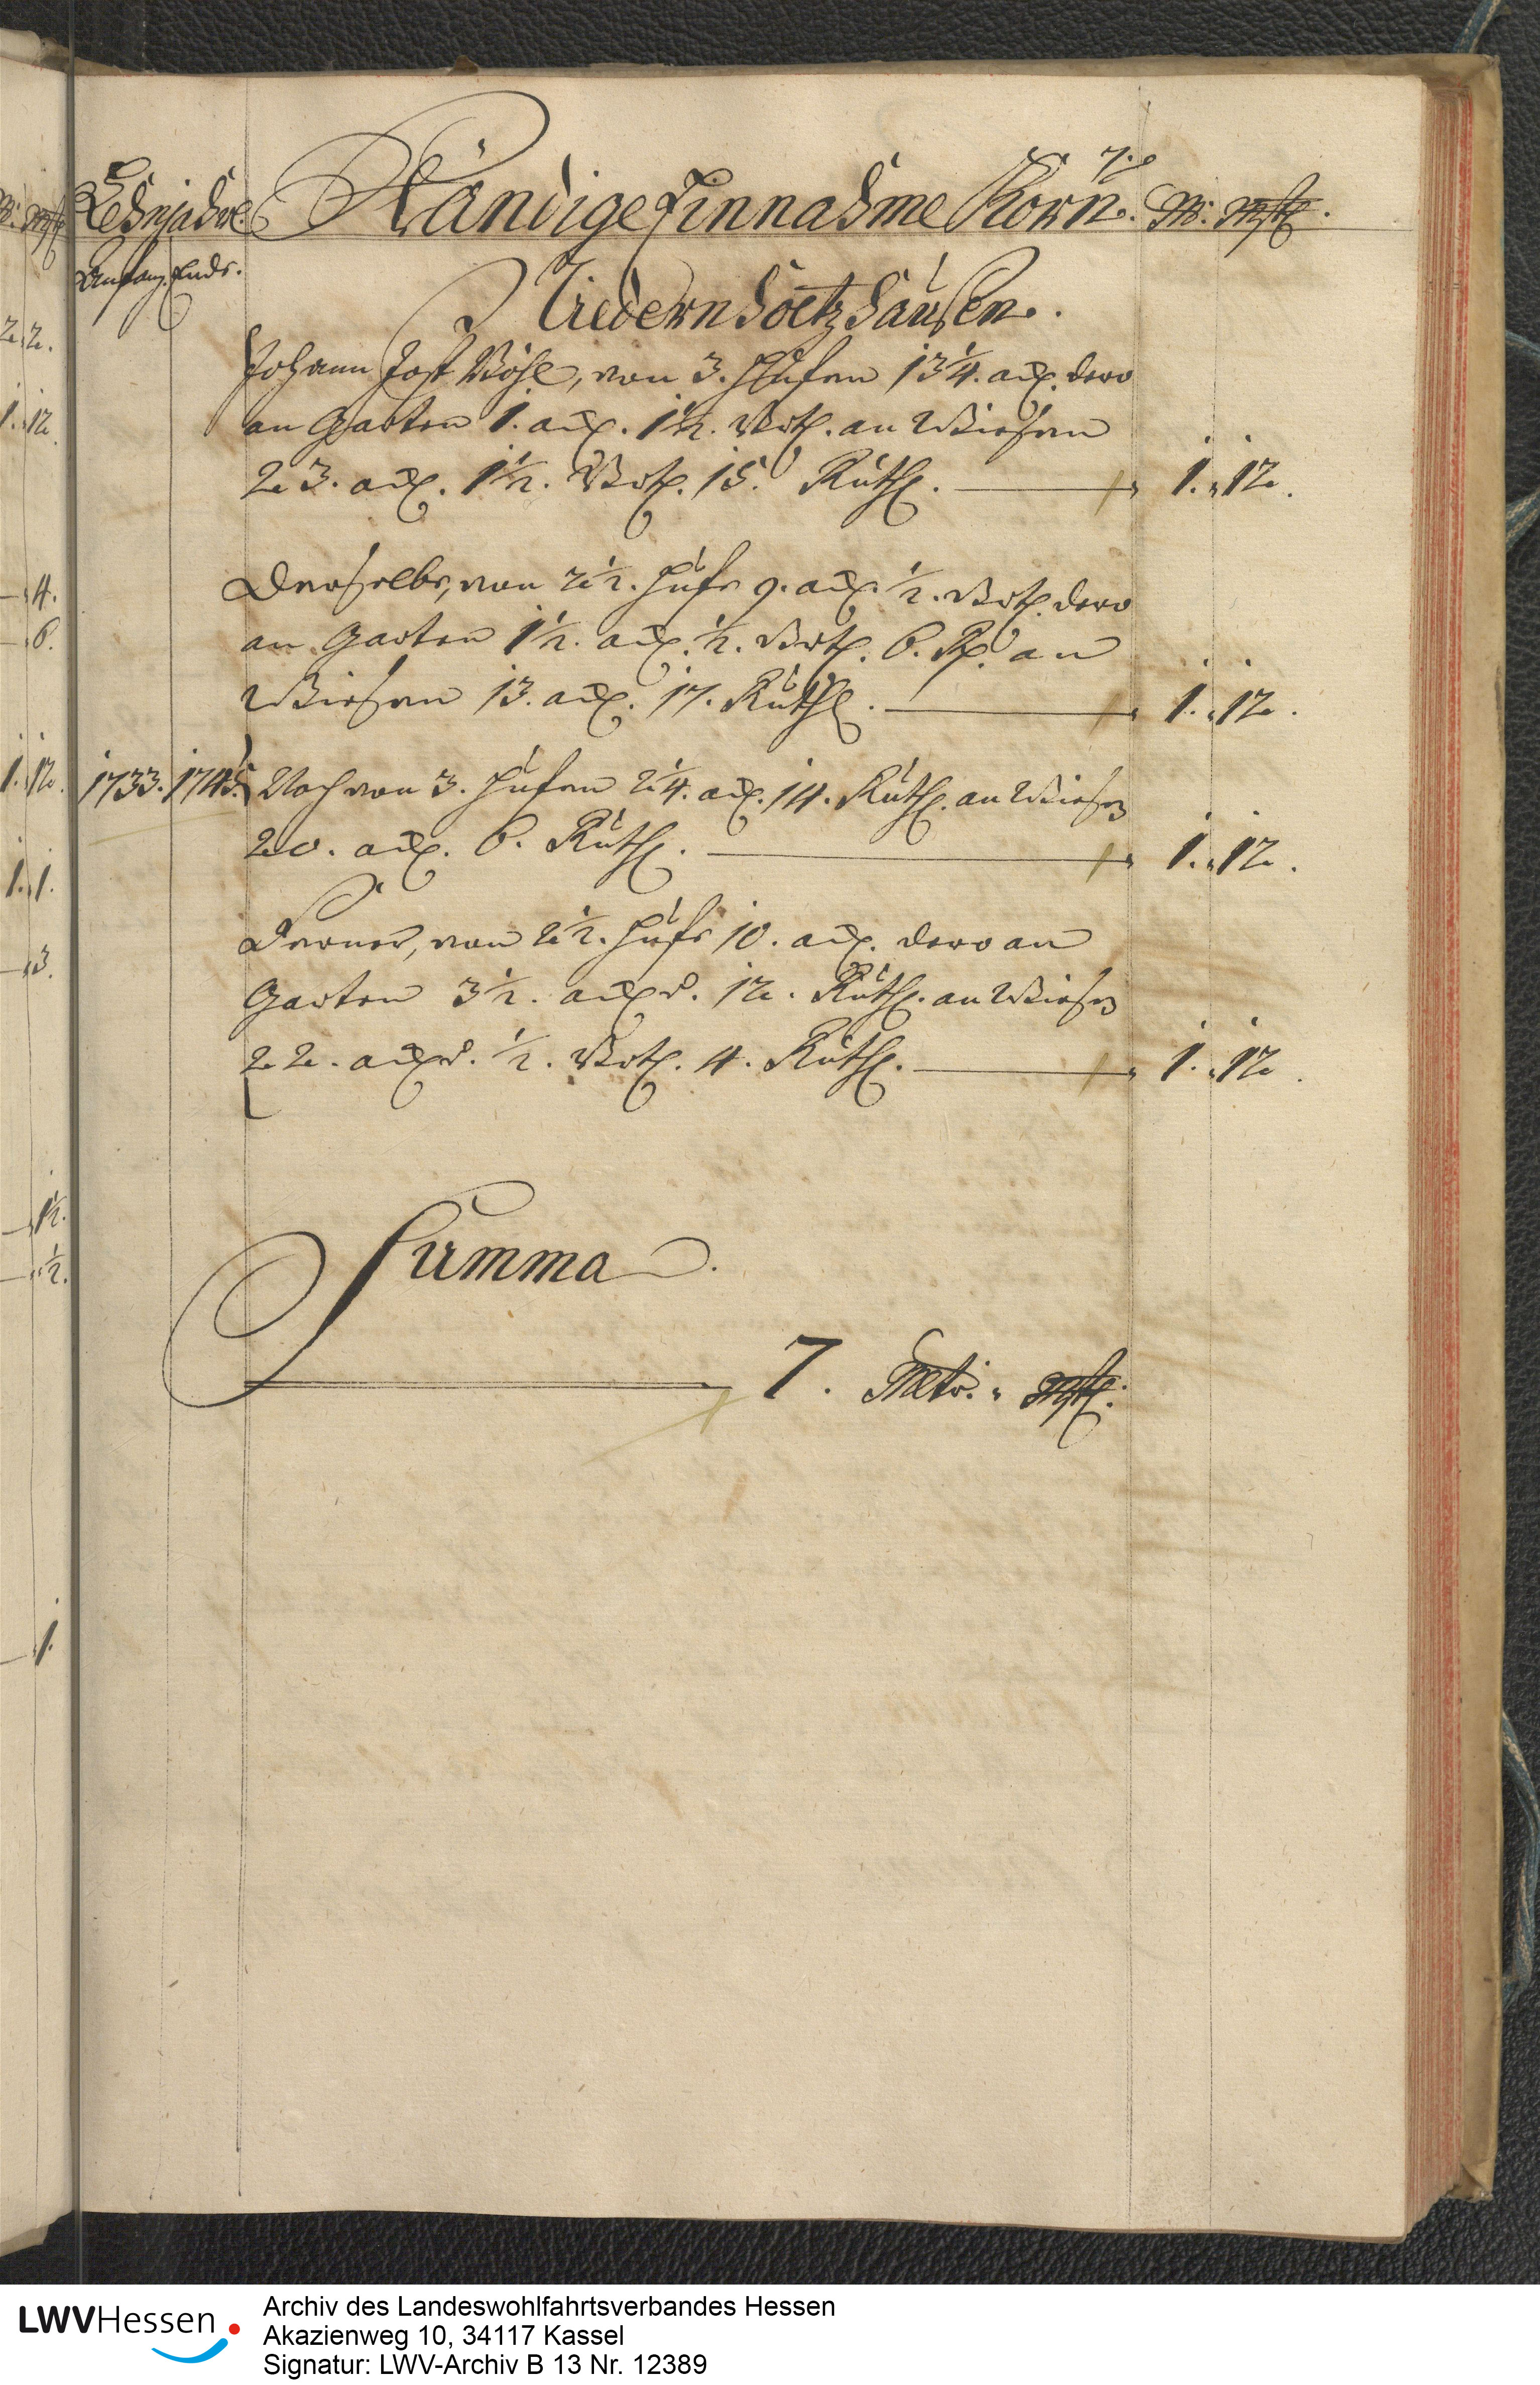 7.
Lehnjahre Ständige Einnahme Korn. M: Mstl.
Anfang. Ende.
Niedern Hoetzhausen.
Johann Jost Böhl, von 3. Hufen 13¼. ack. dero
an Garten 1. ack. 1½. Vrtl. an Wiesen
23. ack. 1½. Vrtl. 15. Ruth. 1. 12.
Derselbe, von 2½. Hufe 9. ack. ½. Vrtl. dero
an Garten 1½. ack. ½. Vrtl. 6. R. an
Wiesen 13. ack. 17. Ruth. 1. 12.
1733. 1745. Noch von 3. Hufen 2¼. ack. 14. Ruth. an Wiesen
20. ack. 6. Ruth. 1. 12.
Ferner, von 2½. Hufe 10. ack. dero an
Garten 3½. acker. 12. Ruth. an Wiesen
22. acker. ½. Vrtl. 4. Ruth. 1. 12.
Summa.
7. Metr. Mstl.
2. 2.
1. 12.
4.
6.
1. 12.
1. 1.
3.
1½.
½.
1.
LWVHessen
Archiv des Landeswohlfahrtsverbandes Hessen
Akazienweg 10, 34117 Kassel
Signatur: LWV-Archiv B 13 Nr. 12389